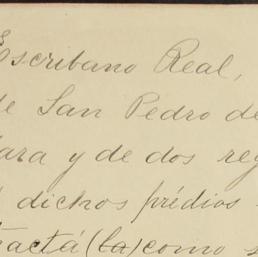 Escribano Real,
de San Pedro de
ara y de dos reg
dichos prédios
tractá (la) como s